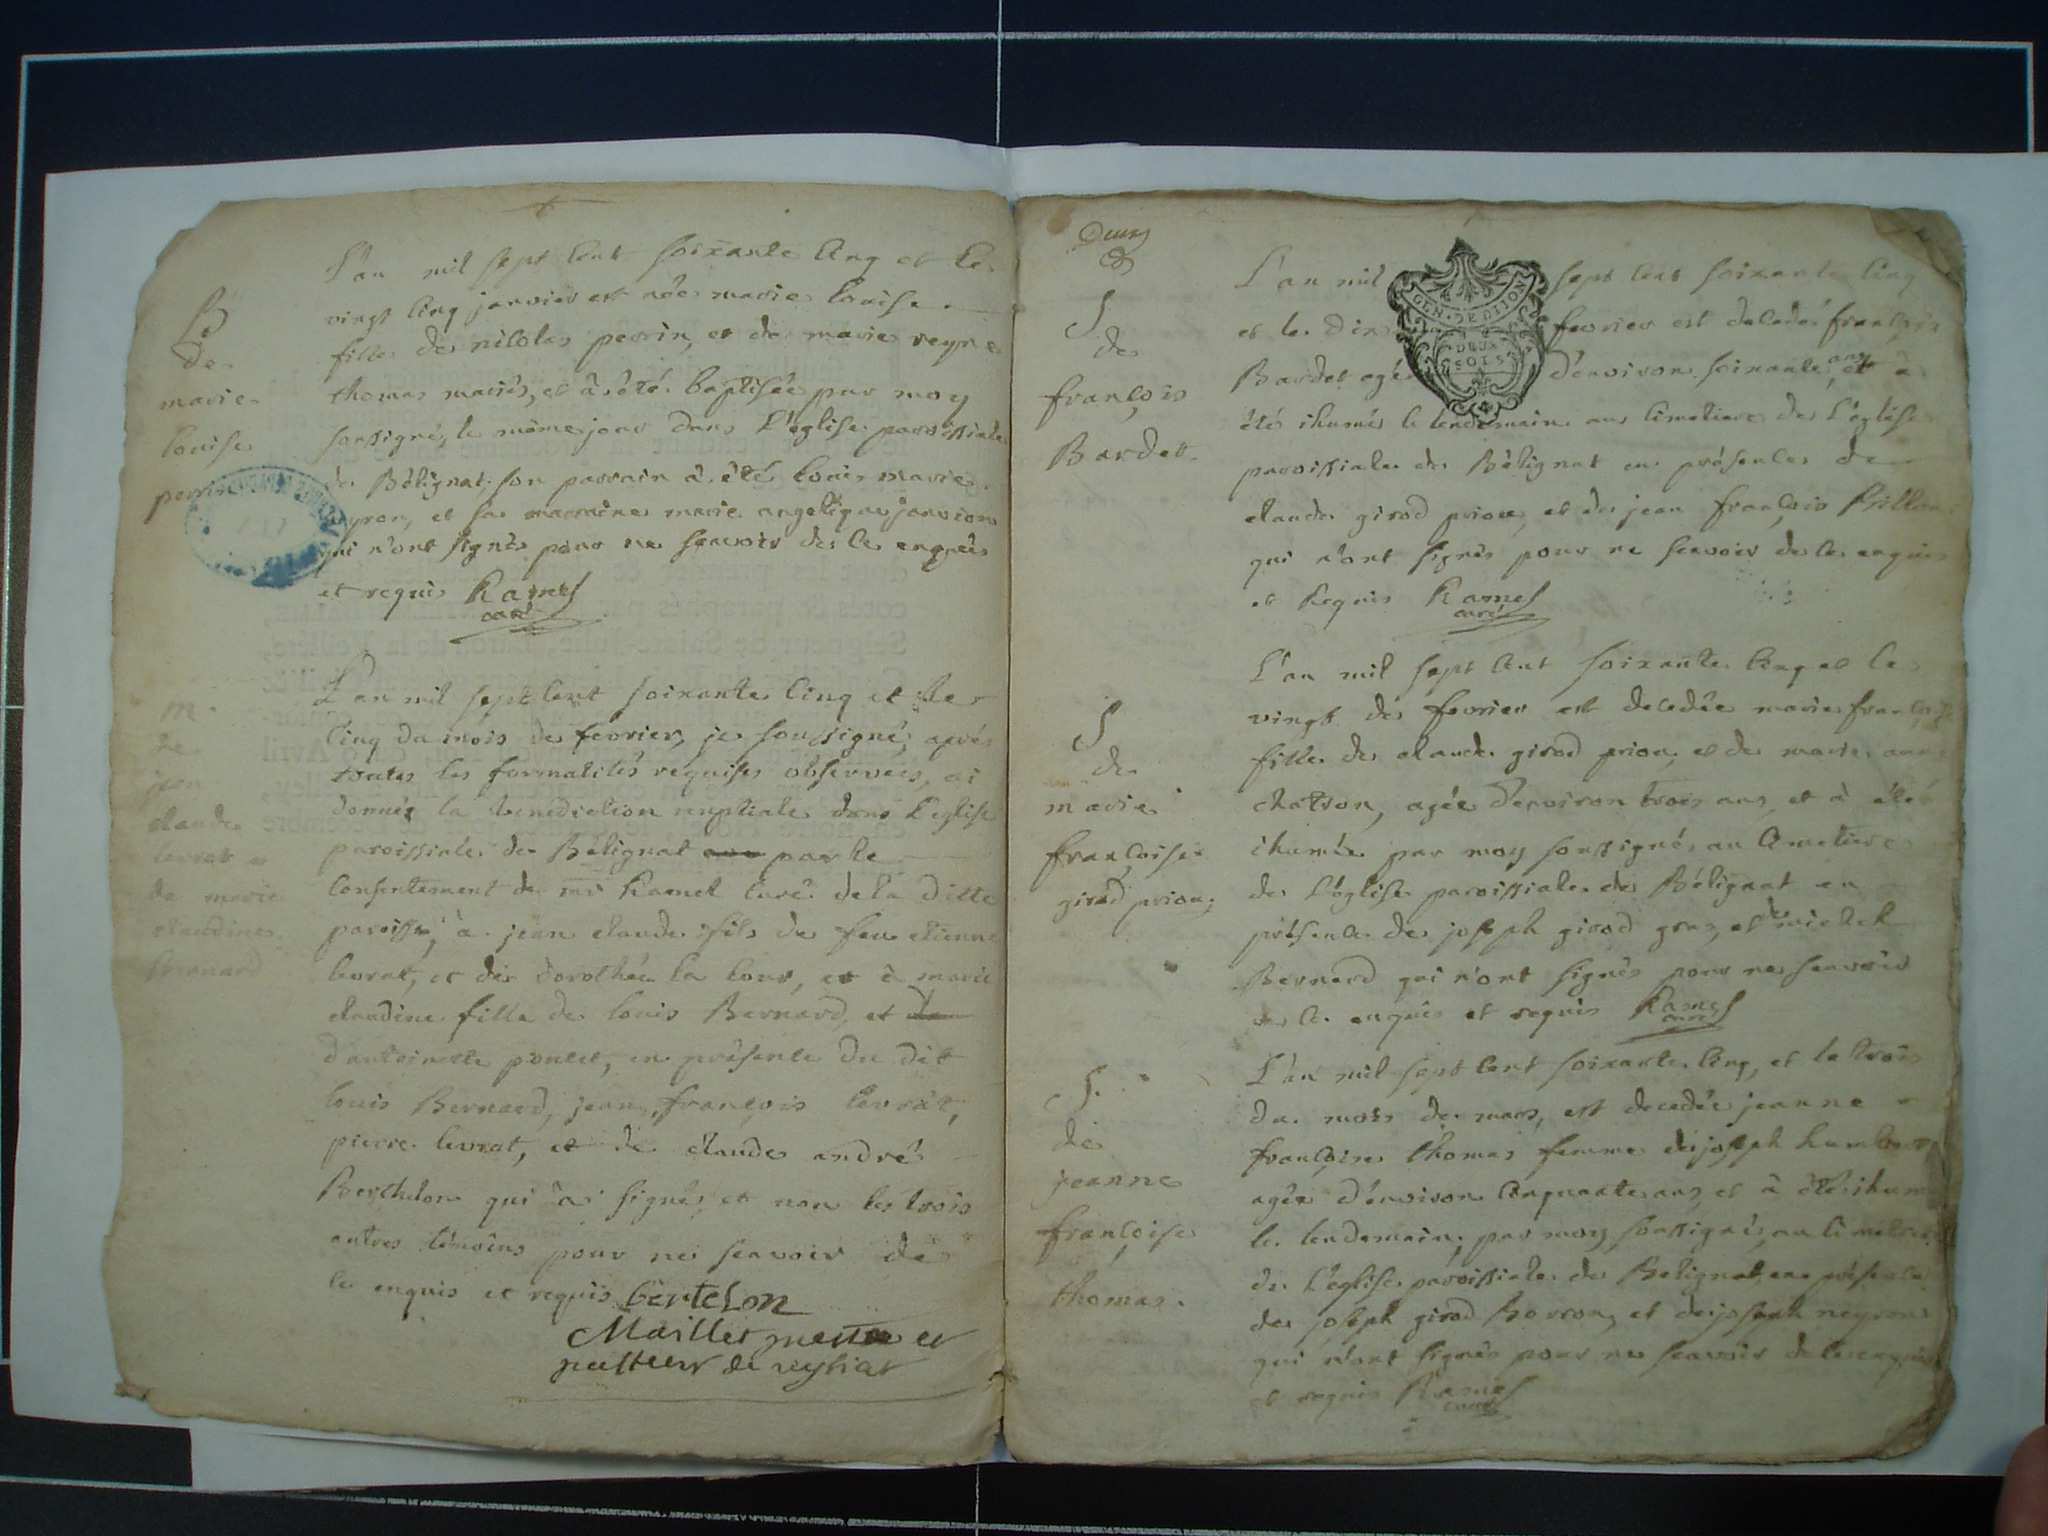 B
de
marie
louise
perrin
L'an mil sept cent soixante cinq et le
vingt cinq janvier est née marie louise
fille de nicolas perrin, et de marie reyne
thomas mariés, et à été baptisée par moy
soussigné, le même jour dans l'église paroissiale
de Bélignat, son parrain à été louis marie
neyron, et sa marraine marie angelique janvion
qui n'ont signés pour ne scavoir de ce enquis
et requis Ramel
curé
M
de
jean
claude
levrat et
de marie
claudine
Bernard
L'an mil sept cent soixante cinq et le
cinq du mois de fevrier, je soussigné, aprés
toutes les formalités requises observées, ai
donnée la benediction nuptiale dans l'eglise
paroissiale de Bélignat par le
consentement de mr Ramel curé de la ditte
paroisse, à jean claude fils de feu etienne
levrat, et de dorothée la cour, et à marie
claudine fille de louis Bernard, et de
d'antoinette poncet, en présence du dit
louis Bernard, jean françois levrat,
pierre levrat, et de claude andré
Berthelon qui a signé, et non les trois
autres témoins pour ne scavoir de
ce enquis et requis bertelon
Maillet pretre et
de
Deux
S
de
françois
Bardet
GEN. DE DIJON
DEUX
SOLS
L'an mil sept cent soixante cinq
et le dix fevrier est decedé françois
Bardet agé d'environ soixante ans, et à
été ihumé le lendemain au cimetiere de l'église
paroissiale de Bélignat en présence de
claude girod prion, et de jean françois Billon
qui n'ont signés pour ne scavoir de ce enquis
et Requis Ramel
curé
S
de
marie
françoise
girod prion
L'an mil sept cent soixante cinq et le
vingt de fevrier est decedée marie françoise
fille de claude girod prion, et de marie anne
chatron, agée d'environ trois ans, et à été
ihumée par moy soussigné, au cimetiere
de l'église paroissiale de Bélignat en
présence de joseph girod gros, et de michel
Bernard qui n'ont signés pour ne scavoir
de ce enquis et requis Ramel
curé
S
de
jeanne
françoise
thomas
L'an mil sept cent soixante cinq, et le trois
du mois de mars, est decedée jeanne
françoise thomas femme de joseph humbert
agée d'environ cinquante ans, et à été ihumée
le lendemain, par moy soussigné, au cimetiere
de l'église paroissiale de Belignat, en présence
de joseph girod Borron, et de joseph neyron
qui n'ont signés pour ne scavoir de ce enquis
et requis Ramel
curé